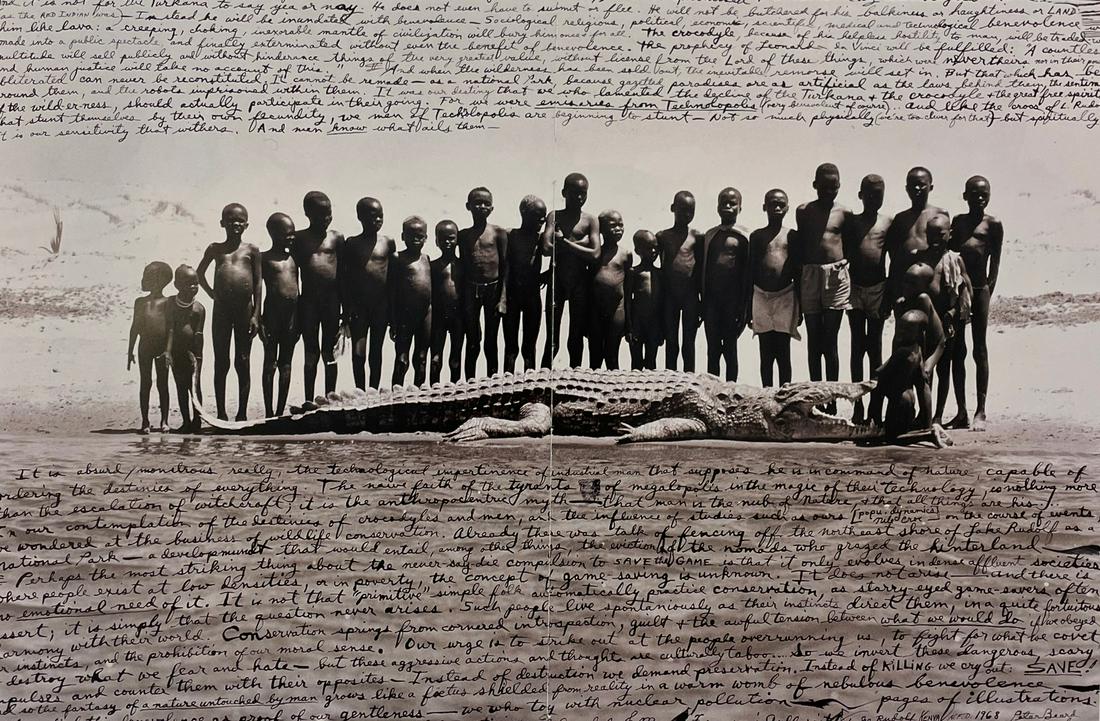 and it is not for the Turkana to say yea or nay. He does not even have to submit or flee. He will not be butchered for his balkiness or haughtiness or LAND
(as the RED INDIAN was) Instead he will be inundated with benevolence — Sociological religious, political, economic, scientific, medical and technological benevolence
him like lava: a creeping, choking, inexorable mantle of civilization will bury him once for all. The crocodyle, because of his helpless hostility to man, will be traded
made into a public spectacle, and finally exterminated without even the benefit of benevolence. The prophecy of Leonardo Da Vinci will be fulfilled: "A countless
multitude will sell publicly and without hinderance things of the very greatest value, without license from the Lord of these things, which were never theirs nor in their power
and human justice will take no account of this." And when the wilderness has been sold out, the inevitable remorse will set in. But that which has be
obliterated can never be reconstituted. It cannot be remade as a national Park, because gazetted paradises are as artificial as the laws behind them, the sentim
round them, and the robots imprisoned within them. It was our destiny that we who lamented the decline of the Turkana & the crocodyle & the great free spirit
f the wild-er-ness, should actually participate in their going. For we were emissaries from Technolopolis (very benevolent of course). And like the crocs of L. Rudo
hat stunt themselves by their own fecundity, we men of Technolopolis are beginning to stunt — Not so much physically (we're too clever for that) — but spiritually
it is our sensitivity that withers. And men know what ails them —
It is absurd / monstrous really, the technological impertinence of industrial man that supposes he is in command of nature, capable of
ordering the destinies of everything. The naive faith of the tyrants of megalopolis in the magic of their technology, is nothing more
than the escalation of witchcraft; it is the anthropocentric myth that man is the nub of Nature & that all things are his.
In our contemplation of the destinies of crocodyles and men, and the influence of studies such as ours [popu. dynamics] on the course of events,
we wondered at the business of wildlife conservation. Already there was talk of fencing off the northeast shore of Lake Rudolf as a
national Park — a development that would entail, among other things, the eviction of the nomads who grazed the hinterland
Perhaps the most striking thing about the never-say-die compulsion to SAVE the GAME is that it only evolves in dense affluent societies
where people exist at low densities, or in poverty, the concept of game saving is unknown. It does not arise — and there is
no emotional need of it. It is not that "primitive" simple folk automatically practice conservation, as starry-eyed game-savers often
assert; it is simply that the question never arises. Such people live spontaniously as their instincts direct them, in a quite fortuitous
harmony with their world. Conservation springs from cornered introspection, guilt & the awful tension between what we would do if we obeyed
r instincts, and the prohibition of our moral sense. Our urge is to strike out at the people overrunning us, to fight for what we covet
destroy what we fear and hate — but these aggressive actions and thoughts are culturally taboo.... So we invert these dangerous, scary
impulses and counter them with their opposites — Instead of destruction we demand preservation. Instead of KILLING we cry out: SAVE!
so the fantasy of a nature untouched by man grows like a foetus shielded from reality in a warm womb of nebulous benevolence
benevolence as proof of our gentleness — we who toy with nuclear pollution — pages of illustrations
Rudolf Kenya 1968 Peter Beard